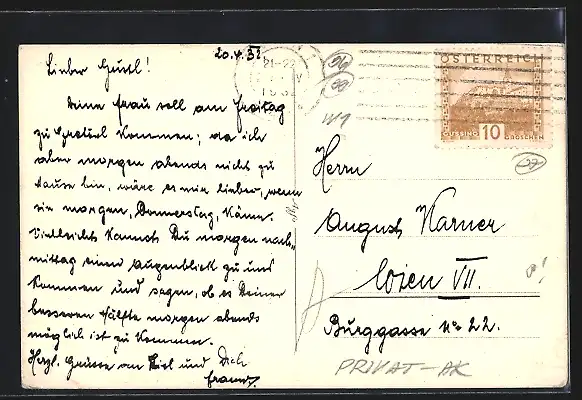 20.4.32
Lieber Gustl!
Deine Frau soll am Freitag
zu Greterl kommen; da ich
aber morgen abends nicht zu
Hause bin, wäre es mir lieber, wenn
sie morgen, Donnerstag, käme.
Vielleicht kannst Du morgen nach-
mittag einen Augenblick zu uns
kommen und sagen, ob es Deiner
besseren Hälfte morgen abends
möglich ist zu kommen.
Herzl. Grüsse an und Dich
Franz.
21-22
ÖSTERREICH
GÜSSING 10 GROSCHEN
Herrn
August Karner
Wien VII.
Burggasse No 22.
PRIVAT-AK